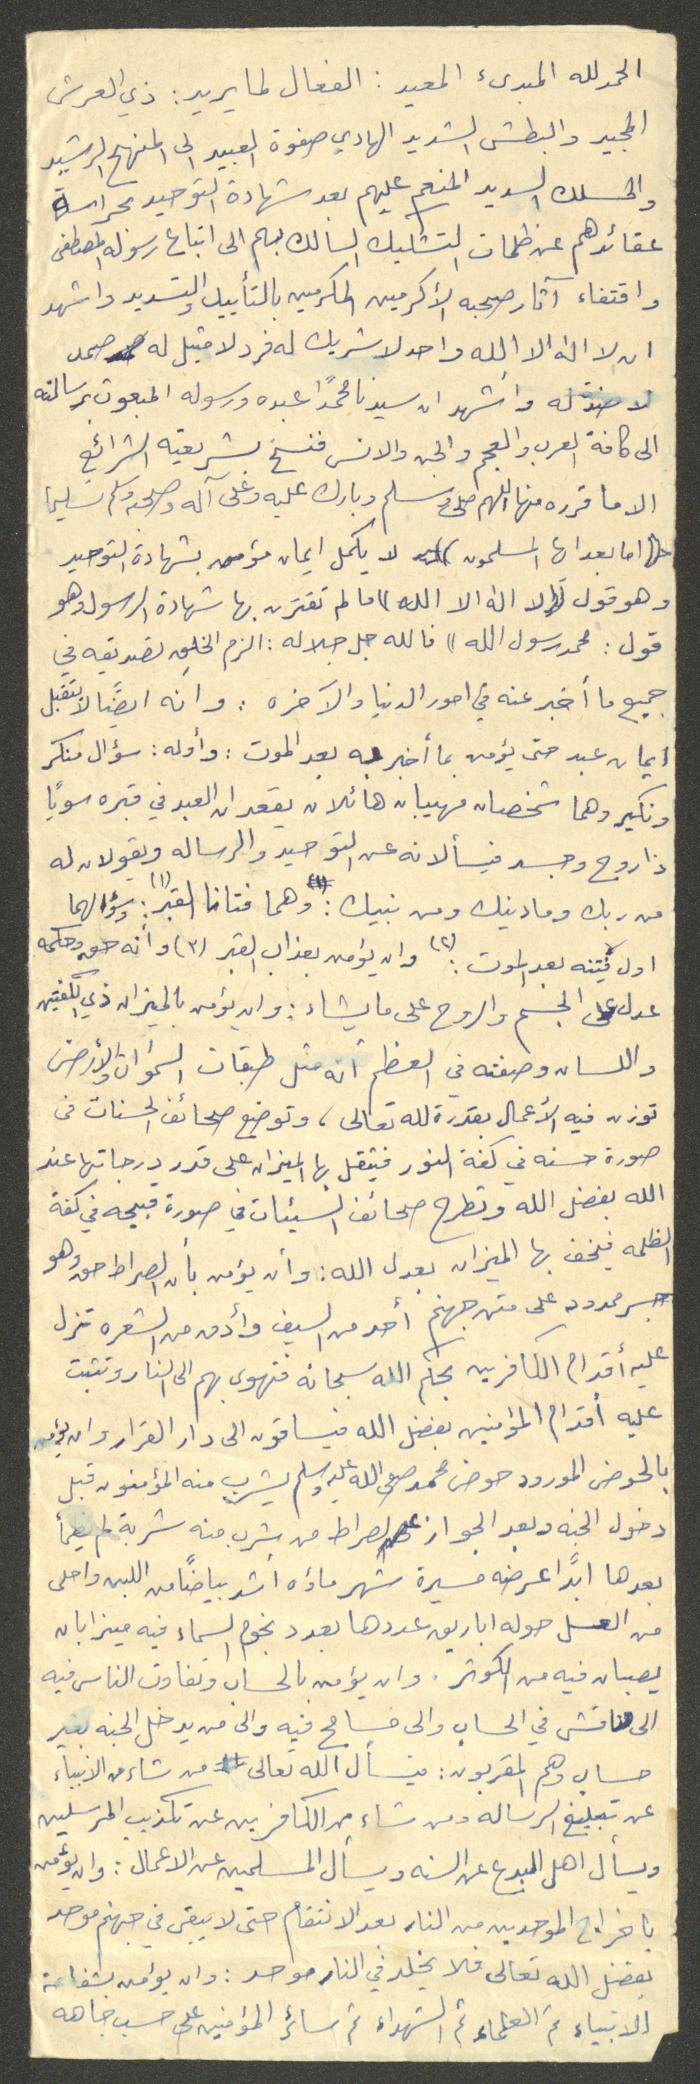 الحمد لله المبدىء المعيد : الفعال لما يريد : ذي العرش
المجيد والبطش الشديد الهادي صفوة العبيد الى المنهج الرشيد
والمسلك السديد المنعم عليهم بعد شهادة التوحيد بحراسة
عقائدهم عن ظلمات التشكيك السالك بهم الى اتباع رسوله المصطفى
واقتفاء آثار صحبه الأكرمين المكرمين بالتأييد والتسديد واشهد
ان لا اله الا الله واحد لا شريك له فرد لا مثيل له صمد
لا ضد له وأشهد ان سيدنا محمدًا عبده ورسوله المبعوث برسالته
الى كافة العرب والعجم والجن والانس فنسخ بشريعته الشرائع
الا ما قرره منها اللهم صل وسلم وبارك عليه وعلى آله وصحبه وسلم تسليما
اما بعد ايها المسلمون لا يكمل ايمان مؤمن بشهادة التوحيد
وهو قول لا اله الا الله )) ما لم تقترن بها شهادة الرسول وهو
قول : محمد رسول الله )) فالله جل جلاله : الزم الخلق تصديقه في
جميع ما أخبر عنه في امور الدنيا والآخره : وأنه ايضًا لا يتقبل
ايمان عبد حتى يؤمن بما أخبر به بعد الموت : وأوله : سؤال منكر
ونكير وهما شخصان مهيبان هائلان يقعدان العبد في قبره سويًا
ذا روح وجسد فيسألانه عن التوحيد والرساله ويقولان له
من ربك وما دينك ومن نبيك : وهما فتانا القبر (١) : وسؤالهما
اول فتنه بعد الموت : (٢) وان يؤمن بعذاب القبر (٣) وأنه حق وحكمه
عدل على الجسم والروح على ما يشاء : وان يؤمن بالميزان ذي الكفتين
واللسان وصفته في العظم أنه مثل طبقات السموات والأرض
توزن فيه الأعمال بقدرة لله تعالى ، وتوضع صحائف الحسنات في
صورة حسنه في كفة النور فيثقل بها الميزان على قدر درجاتها عند
الله بفضل الله وتطرح صحائف السيئات في صورة قبيحه في كفة
الظلمه فيخف بها الميزان بعدل الله : وأن يؤمن بأن الصراط حق وهو
جسر ممدود على متن جهنم أحد من السيف وأدق من الشعره تزل
عليه أقدام الكافرين بحكم الله سبحانه فتهوي بهم الى النار وتثبت
عليه أقدام المؤمنين بفضل الله فيساقون الى دار القرار وان يؤمن
بالحوض المورود حوض محمد صلى الله عليه وسلم يشرب منه المؤمنون قبل
دخول الجنه وبعد الجواز على الصراط من يشرب منه شربة لم يظمأ
بعدها ابدًا عرضه مسيرة شهر ماؤه أشد بياضًا من اللبن واحلى
من العسل حوله اباريق عددها بعدد نجوم السماء فيه ميزابان
يصبان فيه من الكوثر . وان يؤمن بالحساب وتفاوت الناس فيه
الى مناقش في الحساب والى مسامح فيه والى من يدخل الجنه بغير
حساب وهم المقربون : فيسأل الله تعالى من شاء من الانبياء
عن تبليغ الرساله ومن شاء من الكافرين عن تكذيب المرسلين
ويسأل اهل البدع عن السنه ويسأل المسلمين عن الاعمال : وان يؤمن
باخراج الموحدين من النار بعد الانتقام حتى لا يبقى في جهنم موحد
بفضل الله تعالى فلا يخلد في النار موحد : وان يؤمن بشفاعة
الانبياء ثم العلماء ثم الشهداء ثم سائر المؤمنين على حسب جاهه